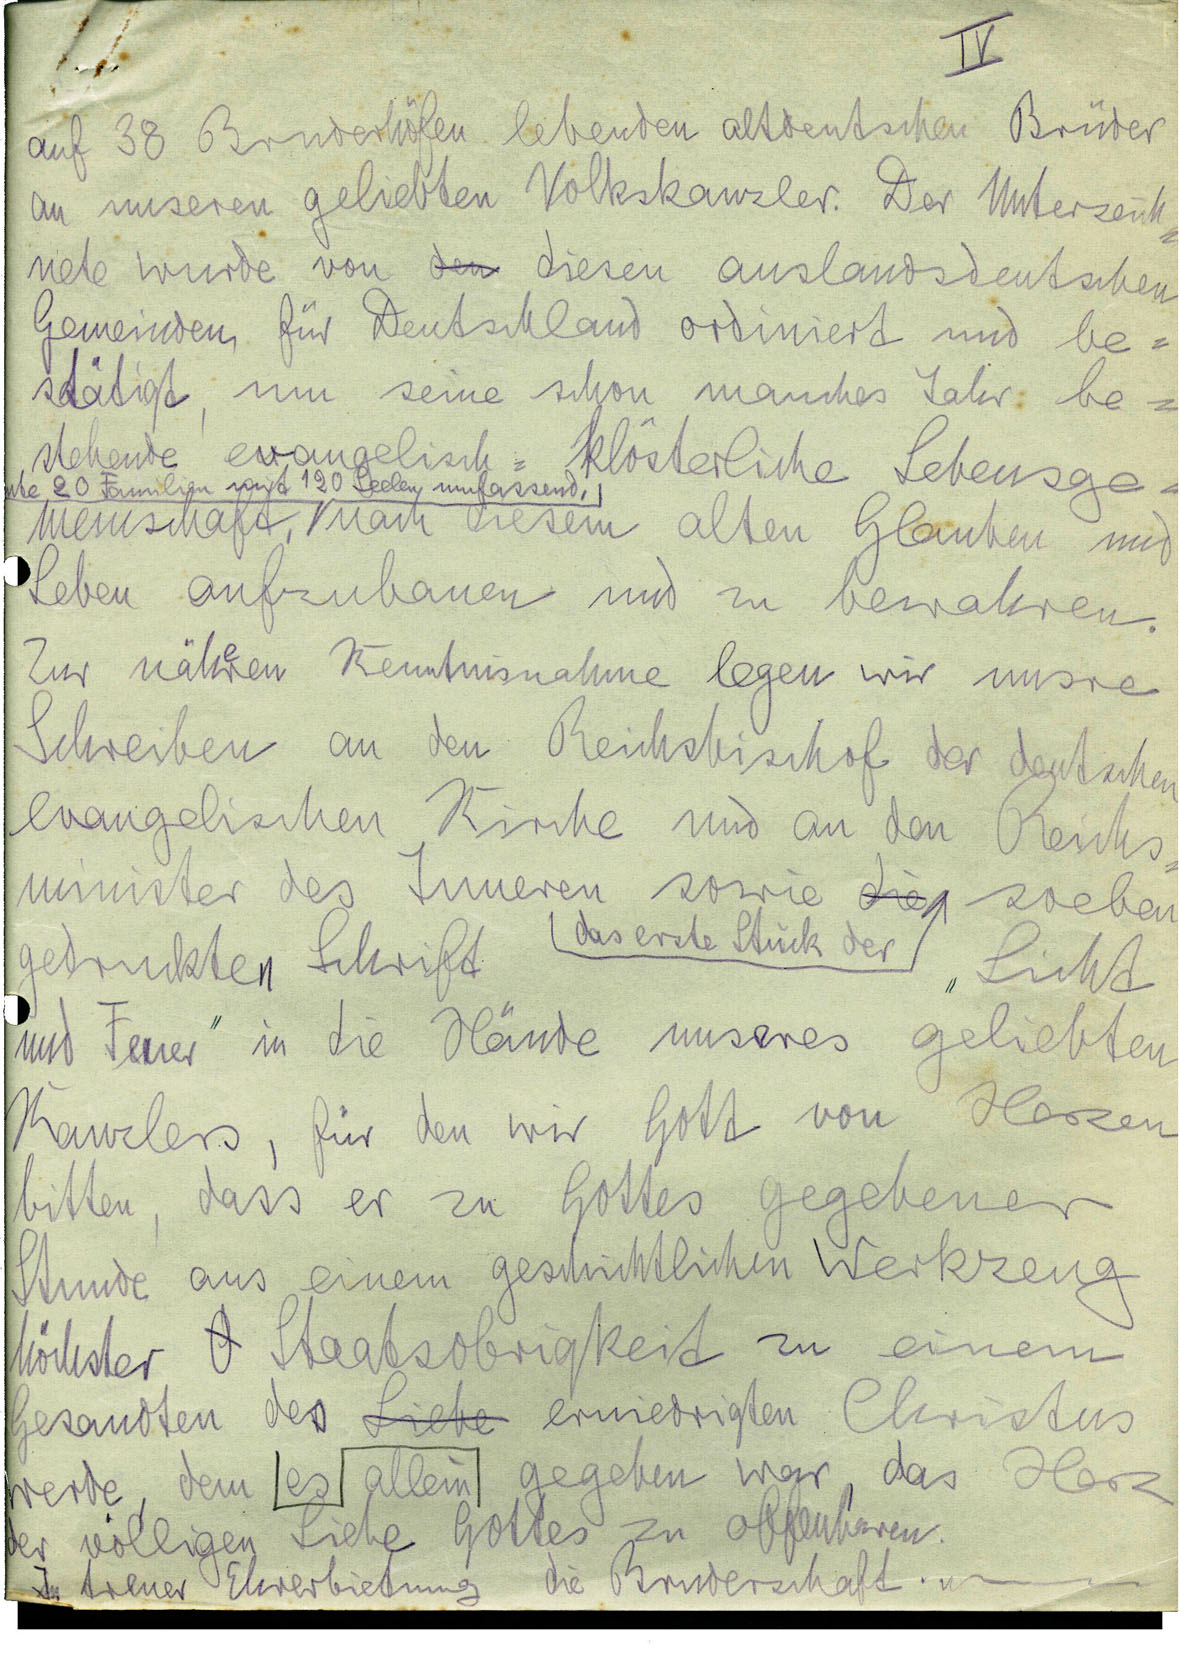 IV
auf 38 Bruderhöfen lebenden altdeutschen Brüder
an unseren geliebten Volkskanzler. Der Unterzeich=
nete wurde von den diesen auslandsdeutschen
Gemeinden, für Deutschland ordiniert und be=
stätigt, um seine schon manches Jahr be=
stehende evangelisch=klösterliche Lebensge=
20 Familien mit 120 Seelen umfassend,
meinschaft, nach diesem alten Glauben und
Leben aufzubauen und zu bewahren.
Zur näheren Kenntnisnahme legen wir unsre
Schreiben an den Reichsbischof der deutschen
evangelischen Kirche und an den Reichs=
minister des Inneren sowie die soeben
das erste Stück der
gedruckten Schrift „Licht
und Feuer" in die Hände unseres geliebten
Kanzlers, für den wir Gott von Herzen
bitten, dass er zu Gottes gegebener
Stunde aus einem geschichtlichen Werkzeug
höchster O Staatsobrigkeit zu einem
Gesandten des Liebe erniedrigten Christus
werde, dem es allein gegeben war, das Herz
der völligen Liebe Gottes zu offenbaren.
In treuer Ehrerbietung die Bruderschaft